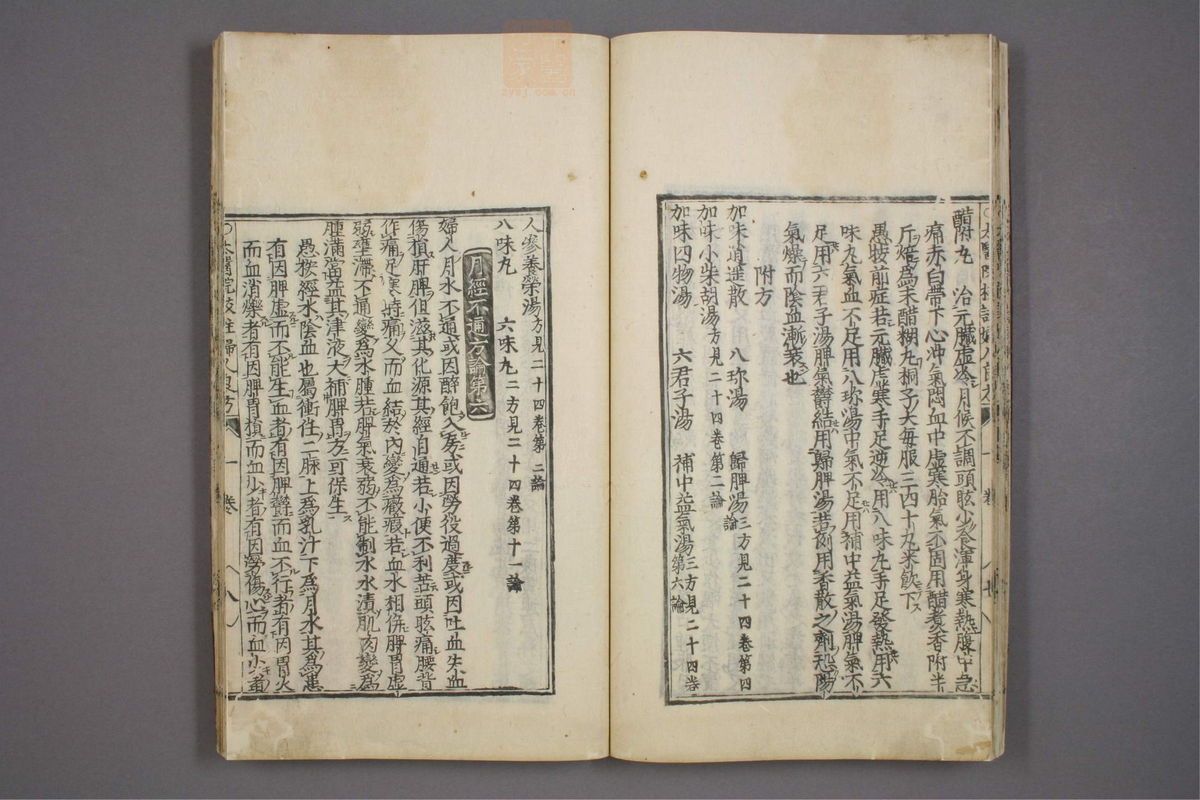 醋附丸 治元臟虛冷月候不調頭眩少食渾身寒熱腹中急
痛赤白帶下心冲氣悶血中虛寒胎氣不固用醋煮香附半
斤焙爲末醋糊丸桐子大每服三四十丸米飮下
愚按前症若元臟虛寒手足逆冷用八味丸手足發熱用六
味丸氣血不足用八珍湯中氣不足用補中益氣湯脾氣不
足用六君子湯脾氣鬱結用歸脾湯若例用香散之劑恐陽
氣燥而陰血漸衰也
附方
加味逍遙散 八珍湯 歸脾湯三方見二十四卷第四論
加味小柴胡湯方見二十四卷第二論
加味四物湯 六君子湯 補中益氣湯三方見二十四卷第六論
人參養榮湯方見二十四卷第二論
八味丸 六味丸二方見二十四卷第十一論
月經不通方論第六
婦人月水不通或因醉飽入房或因勞役過度或因吐血失血
傷損肝脾但滋其化源其經自通若小便不利苦頭眩痛腰背
作痛足寒時痛久而血結於內變爲癥瘕若血水相併脾胃虛
弱壅滯不通變爲水腫若脾氣衰弱不能制水水漬肌肉變爲
腫滿當益其津液大補脾胃方可保生
愚按經水陰血也屬衝任二脉上爲乳汁下爲月水其爲患
有因脾虛而不能生血者有因脾鬱而血不行者有因胃火
而血消爍者有因脾胃損而血少者有因勞傷心而血少者
○太醫院校註婦人良方 一卷 八